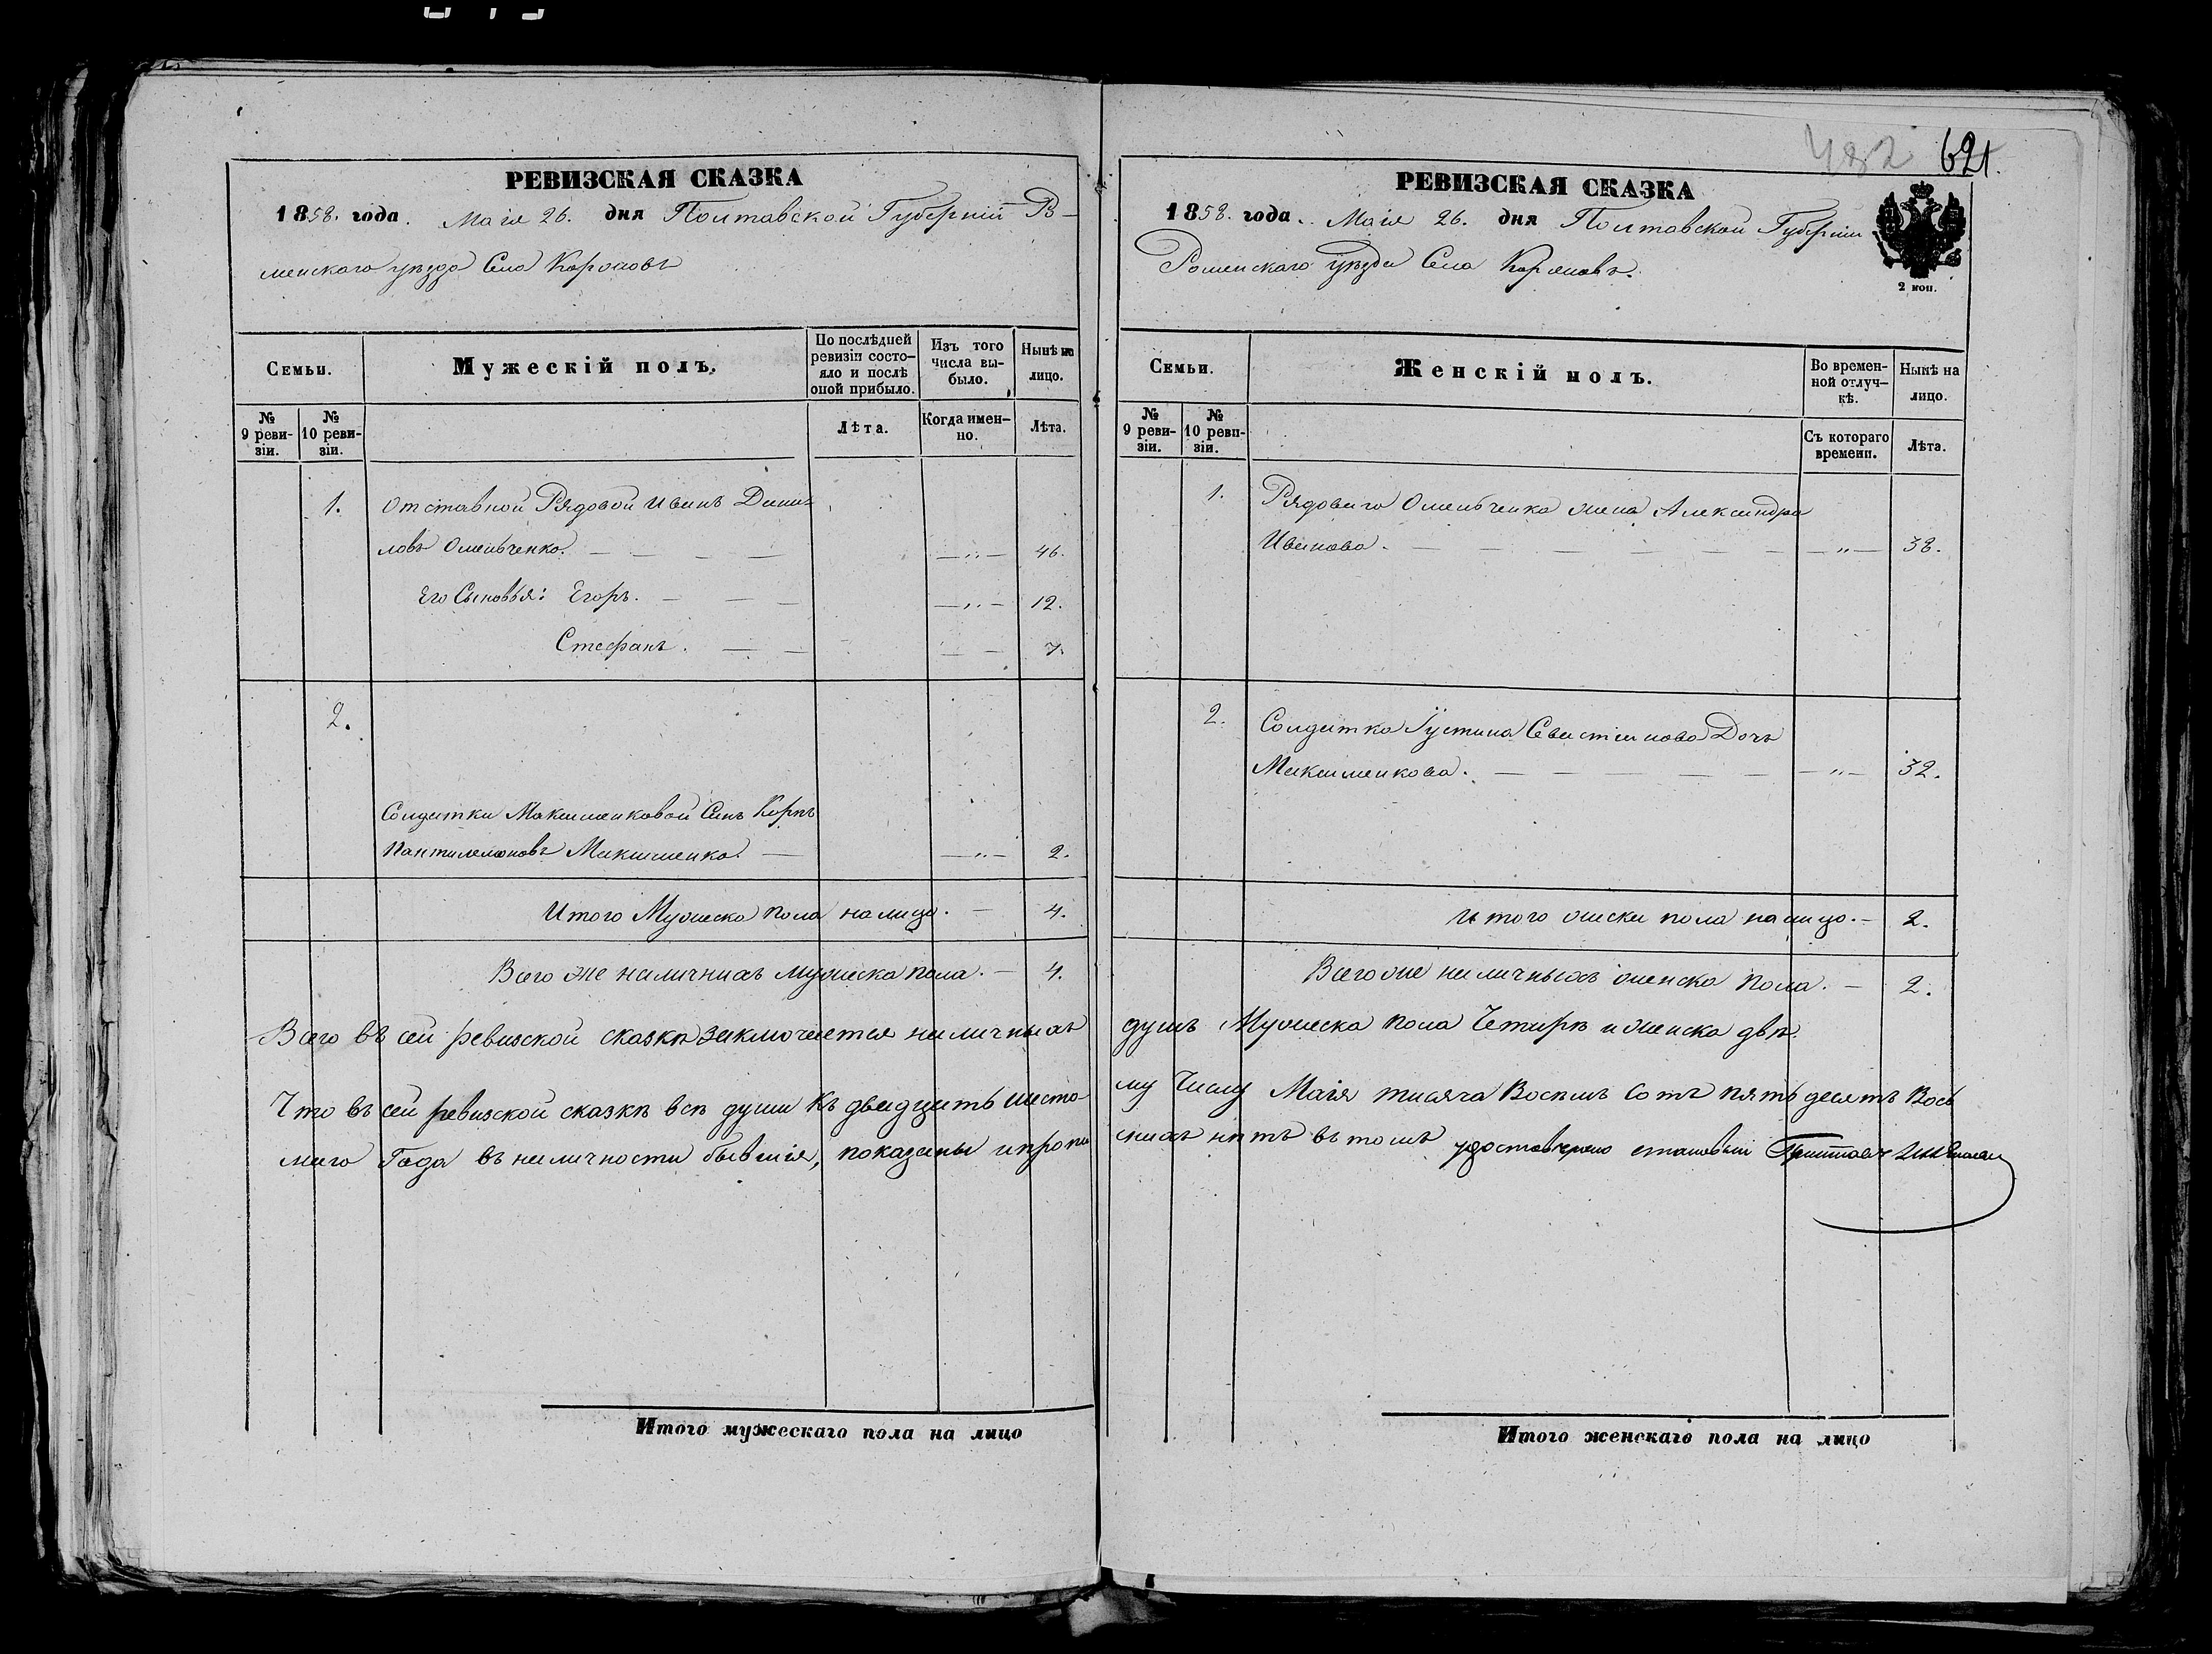 482 621.
РЕВИЗСКАЯ СКАЗКА
1858. года. Маія 26. дня Полтавской Губерніи Ро-
менскаго уѣзда Села Корововъ
Семьи.
Мужескій полъ.
По послѣдней ревизіи состо-яло и послѣ оной прибыло.
Изъ того числа вы-было.
Нынѣ на лицо.
№ 9 реви-зіи.
№ 10 реви-зіи.
Лѣта.
Когда имен-но.
Лѣта.
1. Отставной Рядовой Иванъ Дани-
ловъ Омельченко. — — — — —„— 46.
Его Сыновья: Егоръ. — — — —„— 12.
Стефанъ. — — — — 7.
2.
Солдатки Максименковой Синъ Карпъ
Пантилемоновъ Максименко. — —„— 2.
Итого Мужеска пола на лицо. — 4.
Всего же наличнихъ мужеска пола. — 4.
Всего въ сей ревизской сказкѣ заключается наличныхъ
Что въ сей ревизской сказкѣ всѣ души къ двадцать шесто
маго Года въ наличности бывшія, показаны и пропи
Итого мужескаго пола на лицо
РЕВИЗСКАЯ СКАЗКА
1858. года. Маія 26. дня Полтавской Губерніи
Роменскаго уѣзда Села
2 коп.
Семьи.
Женскій полъ.
Во времен-ной отлуч-кѣ.
Нынѣ на лицо.
№ 9 реви-зіи.
№ 10 реви-зіи.
Съ котораго времени.
Лѣта.
1. Рядоваго Омельченка жена Александра
Иванова. — — — — — — —„— 38.
2. Солдатка Іустина Севастіанова Дочь
Максименкова. — — — — — —„— 32.
Итого женска пола на лицо. — 2.
Всего же наличныхъ женска пола. — 2.
душъ Мужеска пола Четири и женска двѣ.
му Числу Маія тисяча Восемь Сотъ пятьдесятъ Вось
сныхъ нѣтъ въ томъ удостоверено становый
Итого женскаго пола на лицо